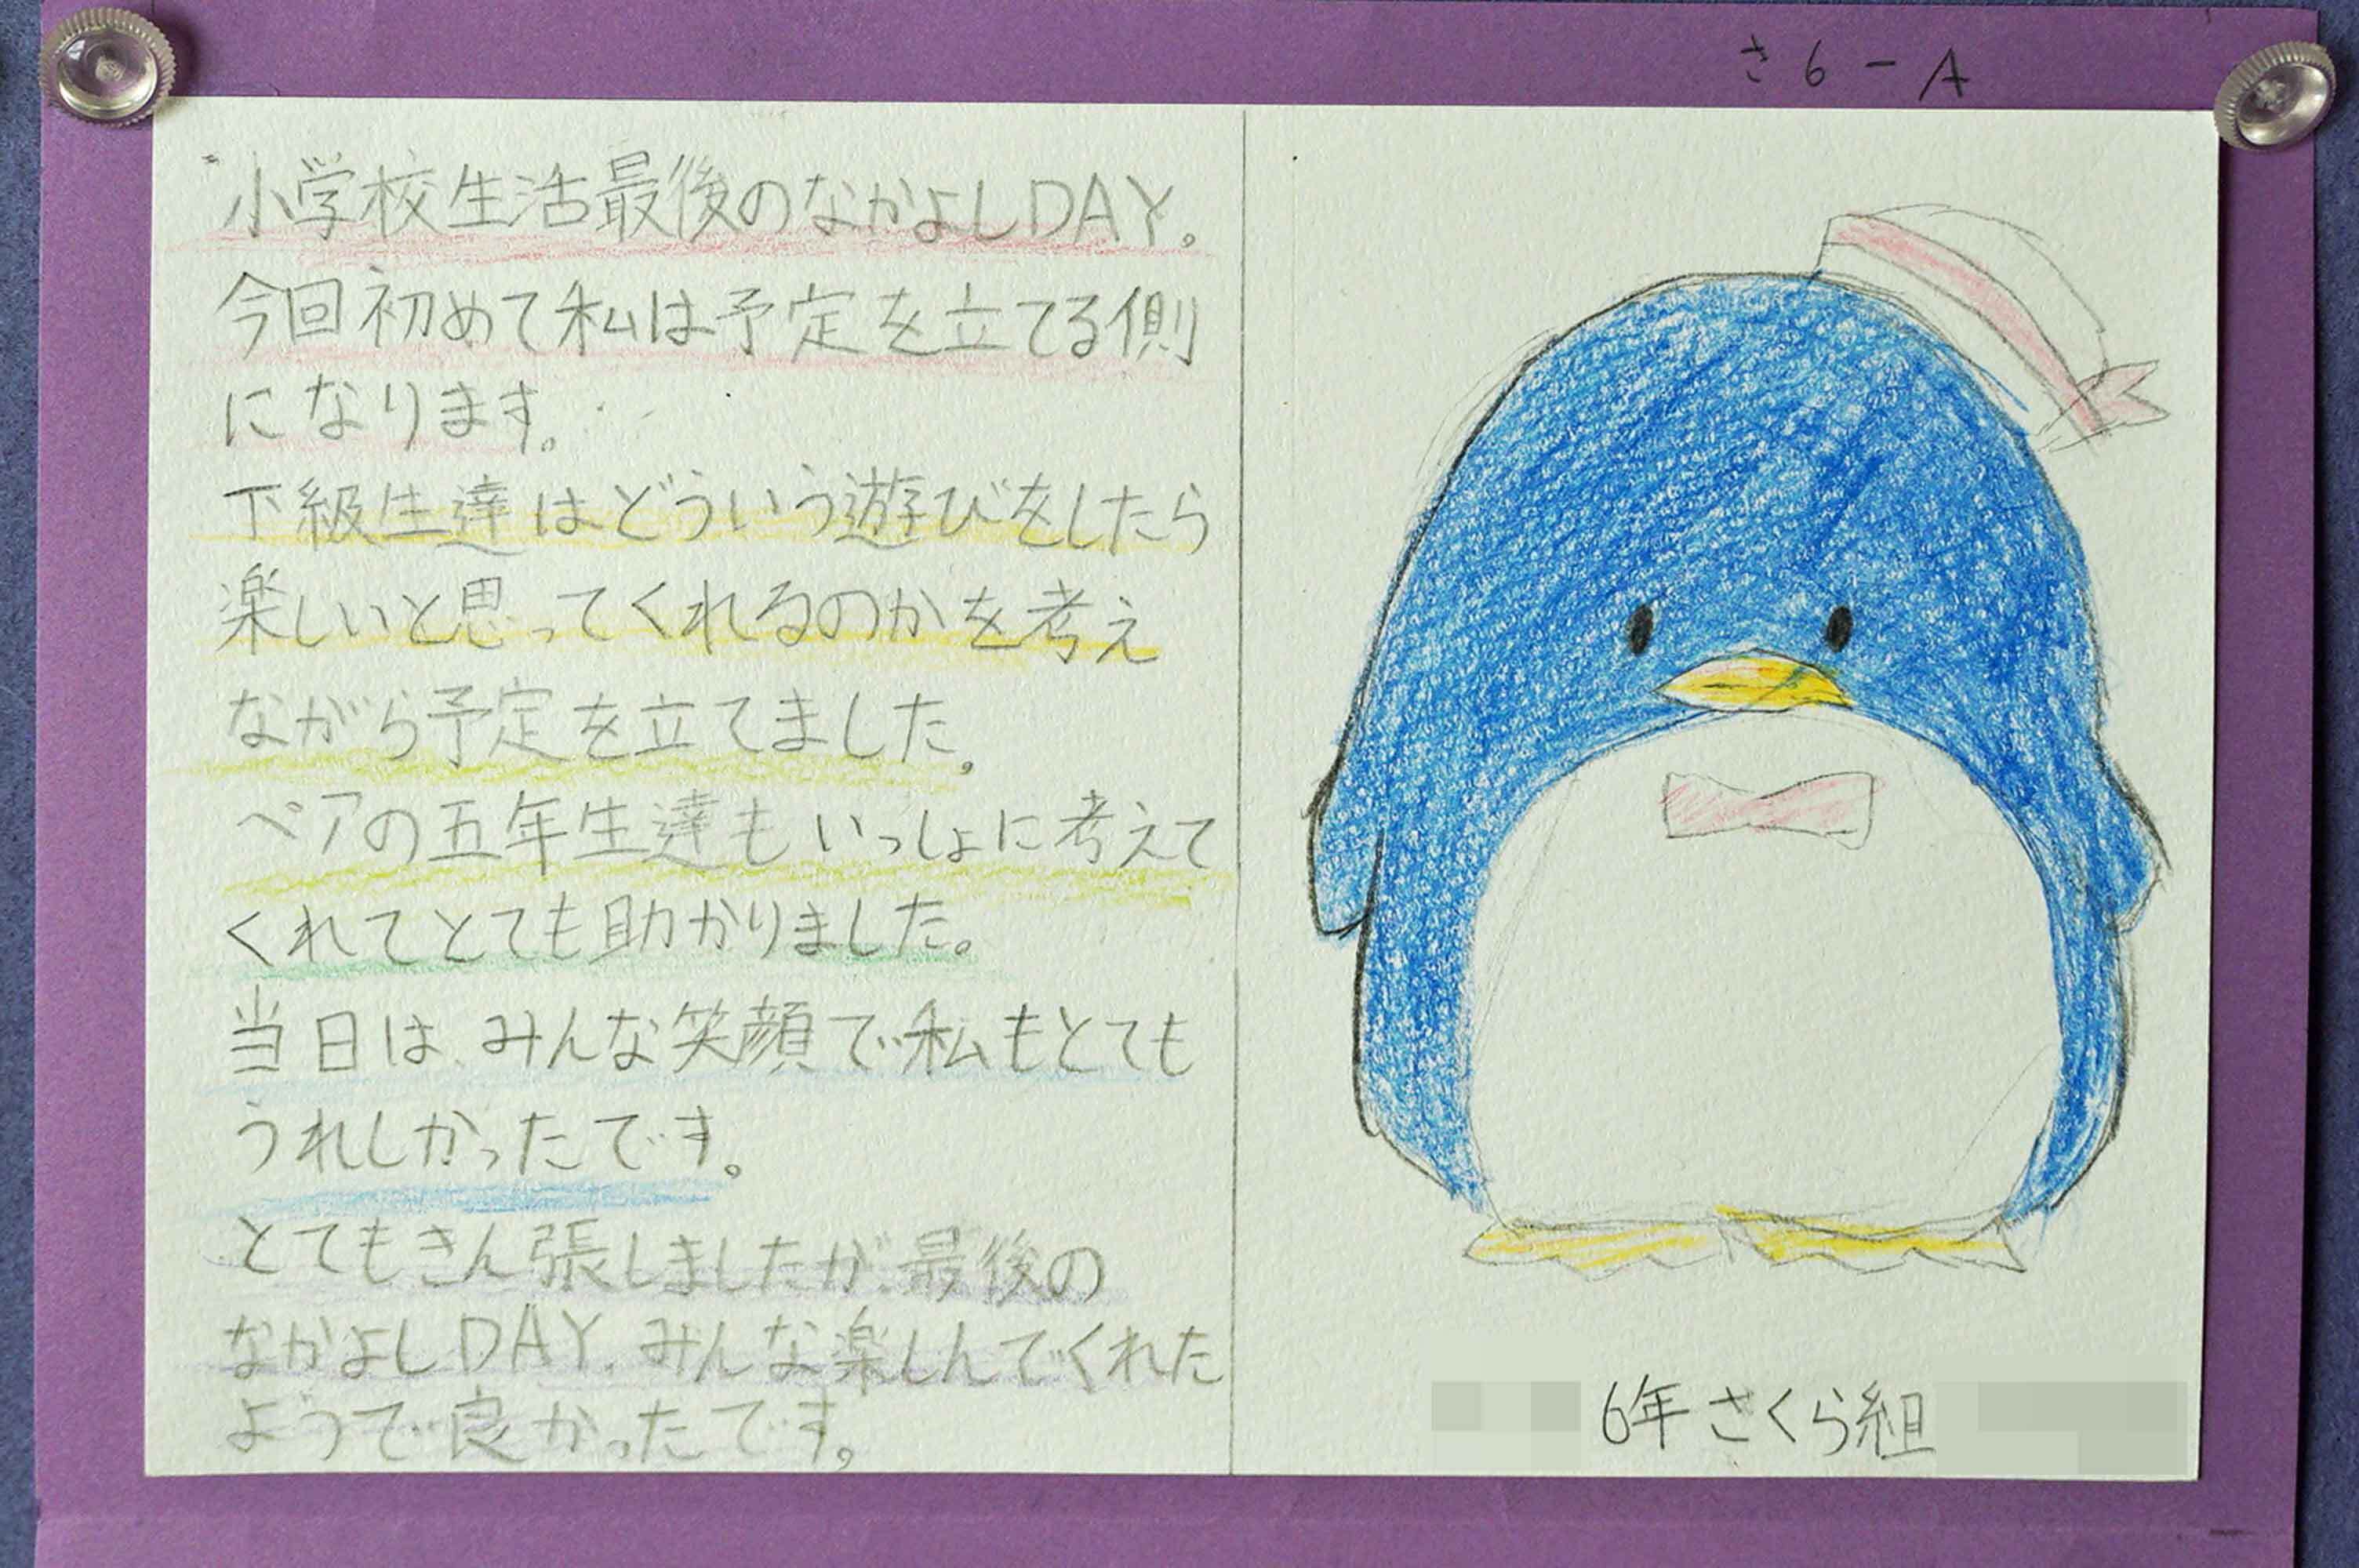 さ6-A
小学校生活最後のなかよしDAY。
今回初めて私は予定を立てる側
になります。
下級生達はどういう遊びをしたら
楽しいと思ってくれるのかを考え
ながら予定を立てました。
ペアの五年生達もいっしょに考えて
くれてとても助かりました。
当日は、みんな笑顔で私もとても
うれしかったです。
とてもきん張しましたが、最後の
なかよしDAY、みんな楽しんでくれた
ようで良かったです。
6年さくら組